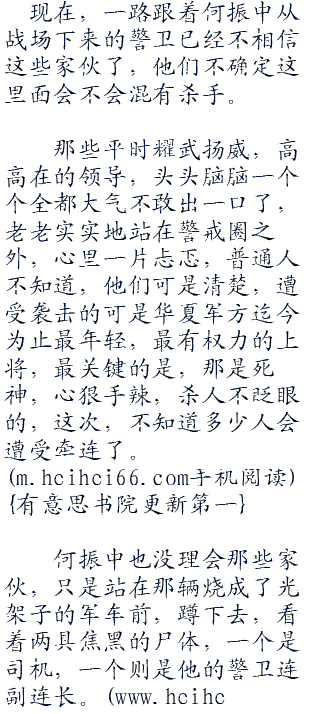 现在，一路跟着何振中从
战场下来的警卫已经不相信
这些家伙了，他们不确定这
里面会不会混有杀手。
那些平时耀武扬威，高
高在的领导，头头脑脑一个
个全都大气不敢出一口了，
老老实实地站在警戒圈之
外，心里一片忐忑，普通人
不知道，他们可是清楚，遭
受袭击的可是华夏军方迄今
为止最年轻，最有权力的上
将，最关键的是，那是死
神，心狠手辣，杀人不眨眼
的，这次，不知道多少人会
遭受牵连了。
(m.hcihci66.com手机阅读)
{有意思书院更新第一}
何振中也没理会那些家
伙，只是站在那辆烧成了光
架子的军车前，蹲下去，看
着两具焦黑的尸体，一个是
司机，一个则是他的警卫连
副连长。(www.hcihc